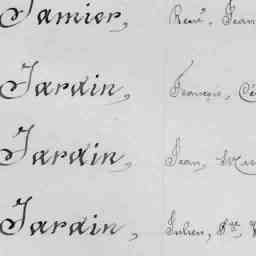 Jamier, René, Jean
Jardin, François, Cé
Jardin, Jean,
Jardin, Julien,